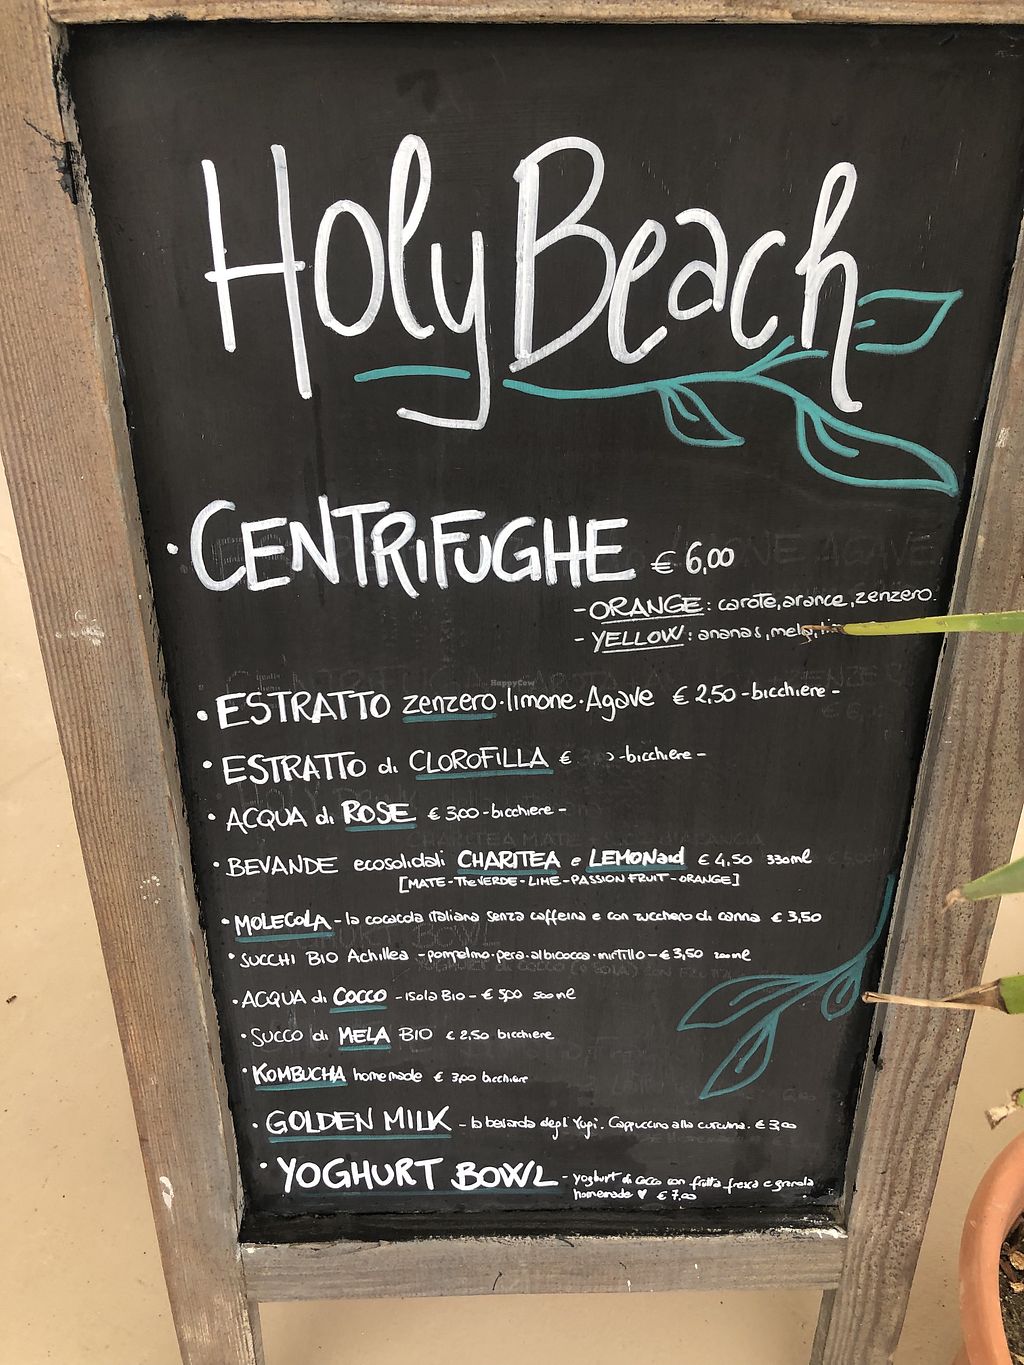 Holy Beach
• CENTRIFUGHE € 6,00
- ORANGE: carote, arance, zenzero.
- YELLOW: ananas, mela,
• ESTRATTO zenzero • limone • Agave € 2,50 - bicchiere -
• ESTRATTO di CLOROFILLA € - bicchiere -
• ACQUA di ROSE € 3,00 - bicchiere -
• BEVANDE ecosolidali CHARITEA e LEMONaid € 4,50 330ml
[MATE - The VERDE - LIME - PASSION FRUIT - ORANGE]
• MOLECOLA - la cocacola italiana senza caffeina e con zucchero di canna € 3,50
• SUCCHI BIO Achillea - pompelmo • pera • albicocca • mirtillo - € 3,50 200ml
• ACQUA di COCCO - Isola Bio - € 5,00 500ml
• SUCCO di MELA BIO € 2,50 bicchiere
• KOMBUCHA homemade € 3,00 bicchiere
• GOLDEN MILK - la bevanda degli Yogi. Cappuccino alla curcuma. € 3,00
• YOGHURT BOWL - yoghurt di cocco con frutta fresca e granola
homemade ♥ € 7,00